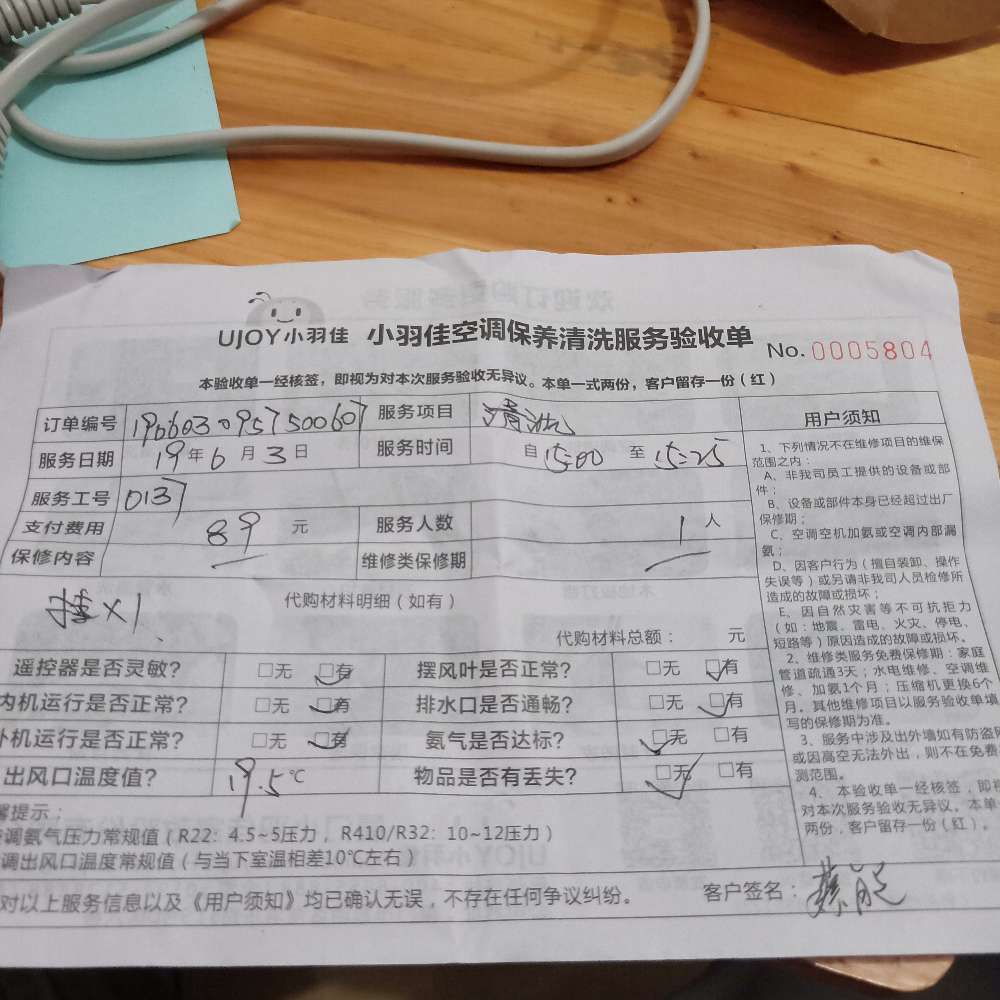 UJOY小羽佳 小羽佳空调保养清洗服务验收单 No. 0005804
本验收单一经核签，即视为对本次服务验收无异议。本单一式两份，客户留存一份（红）
订单编号 1906030957500607 服务项目 清洗
服务日期 19年6月3日 服务时间 自15:00至15:25
服务工号 0137
支付费用 89元 服务人数 1人
保修内容 — 维修类保修期 —
挂×1、 代购材料明细（如有）
代购材料总额： 元
遥控器是否灵敏？ □无 ☑有 摆风叶是否正常？ □无 ☑有
内机运行是否正常？ □无 ☑有 排水口是否通畅？ □无 ☑有
外机运行是否正常？ □无 ☑有 氨气是否达标？ ☑无 □有
出风口温度值？ 19.5℃ 物品是否有丢失？ ☑无 □有
提示：
调氨气压力常规值（R22：4.5~5压力，R410/R32：10~12压力）
调出风口温度常规值（与当下室温相差10℃左右）
对以上服务信息以及《用户须知》均已确认无误，不存在任何争议纠纷。 客户签名：
用户须知
1、下列情况不在维修项目的维保
范围之内：
A、非我司员工提供的设备或部
件；
B、设备或部件本身已经超过出厂
保修期；
C、空调空机加氨或空调内部漏
氨；
D、因客户行为（擅自装卸、操作
失误等）或另请非我司人员检修所
造成的故障或损坏；
E、因自然灾害等不可抗拒力
（如：地震、雷电、火灾、停电、
短路等）原因造成的故障或损坏。
2、维修类服务免费保修期：家庭
管道疏通3天；水电维修、空调维
修、加氨1个月；压缩机更换6个
月。其他维修项目以服务验收单填
写的保修期为准。
3、服务中涉及出外墙如有防盗网
或因高空无法外出，则不在免费
测范围。
4、本验收单一经核签，即视
对本次服务验收无异议。本单
两份，客户留存一份（红）。